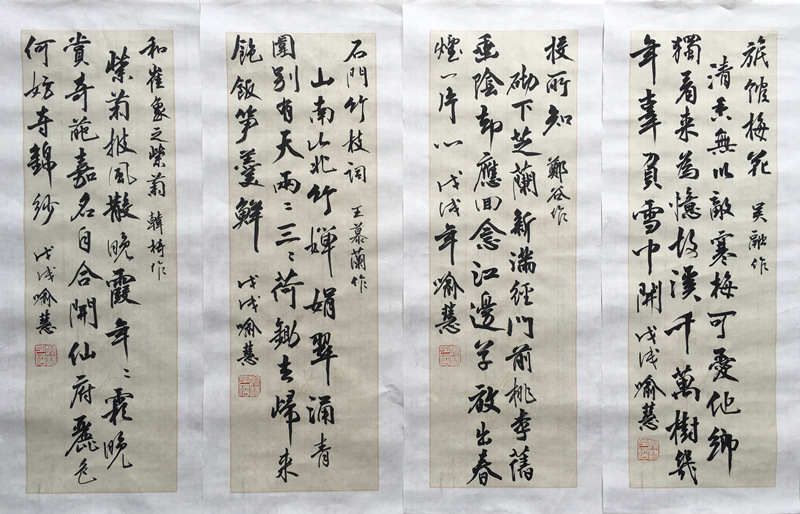 旅館梅花 吴融作
清香無以敵寒梅可愛他鄉
獨看来為憶故溪千萬樹幾
年辜負雪中開 戊戌喻慧
投所知 鄭谷作
砌下芝蘭新滿徑門前桃李舊
垂陰却應回念江邊草放出春
煙一片心 戊戌年喻慧
石門竹枝詞 王慕蘭作
山南山北竹嬋娟翠涌青
圍別有天兩〻三〻荷鋤去歸来
飽飯笋羹鮮 戊戌喻慧
和崔象之紫菊 韓琦作
紫菊披風散晚霞年〻霜晚
賞奇葩嘉名自合開仙府麗色
何妨奪錦紗 戊戌喻慧